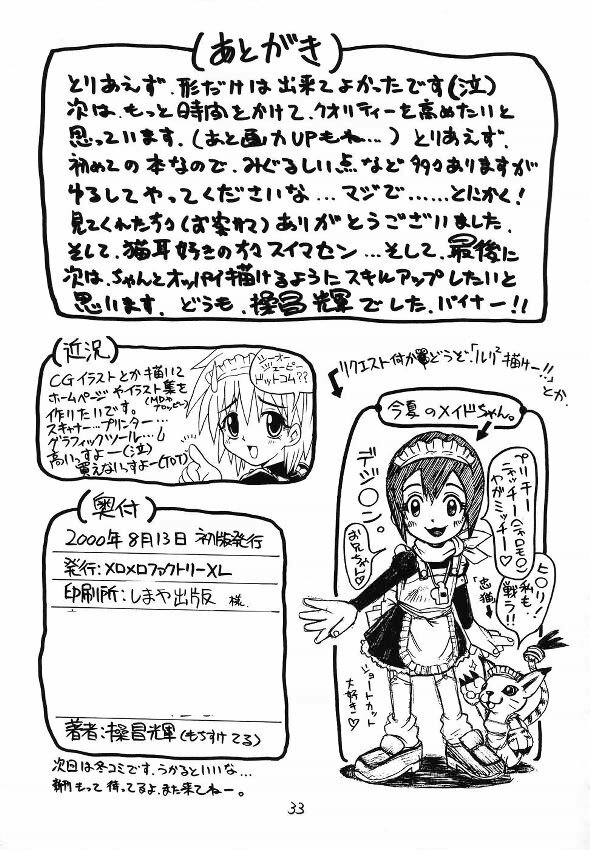 (あとがき)
とりあえず、形だけは出来てよかったです(泣)
次は、もっと時間をかけて、クオリティーを高めたいと
思っています、(あと画力UPもね…)とりあえず、
初めての本なので、みぐるしい点など多々ありますが
ゆるしてやってくださいな…マジで……とにかく!
見てくれた方々(お客様)ありがとうございました、
そして、猫耳好きの方々スイマセン…そして、最後に
次は、ちゃんとオッパイ描けるようにスキルアップしたいと
思います、どうも、操昌輝でした、バイナー!!
(近況)
CGイラストとか描いて
ホームページやイラスト集を
作りたいです。(MDや
フロッピー)
スキャナー…プリンター…
グラフィックツール…
高いっすよー(泣)
買えないっすよー(ToT)
ジーオー
ジェーピー
ドットコム??
リクエスト何か
どうぞ、「ルリ²描けー!!」
とか、
今夏のメイドちゃん。
デジ〇ン。
プリチー
ニャッチー(ニャロモ〇)
やがミッチー♡
お兄ちゃん♡
ヒ〇リ!
私も
戦う!!
「忠猫」
ショートカット
大好き♡
(奥付)
2000年8月13日 初版発行
発行:メロメロファクトリーXL
印刷所:しまや出版 様
著者:操昌輝(もちすけてる)
次回は冬コミです、うかるといいな…
新刊もって待ってるよ、また来てねー。
33